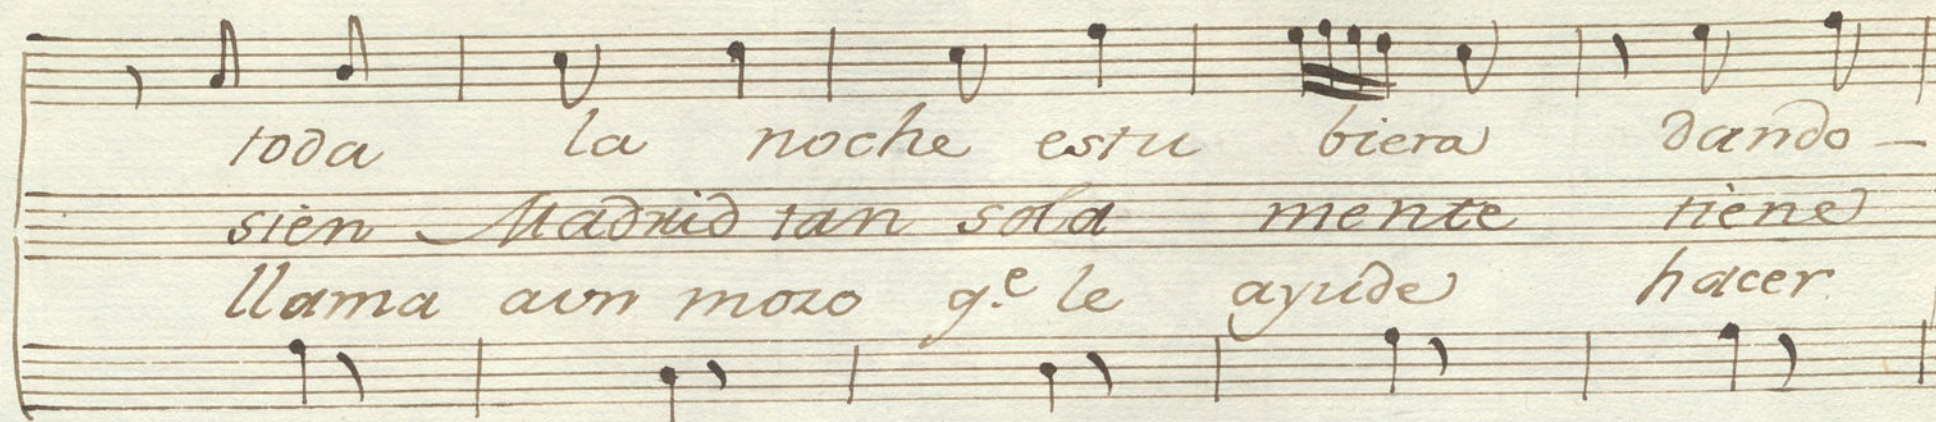 toda la noche estu biera dando –
sien Madrid tan sola mente tiene
llama aun mozo q.e le ayude hacer